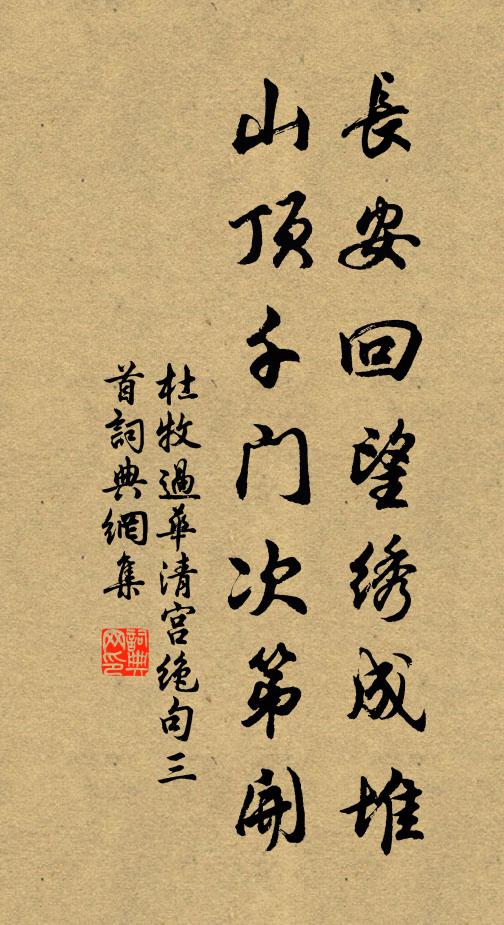 長安回望绣成堆
山顶千门次第開
杜牧過華清宫绝句三
首詞典網集
詞典
网印